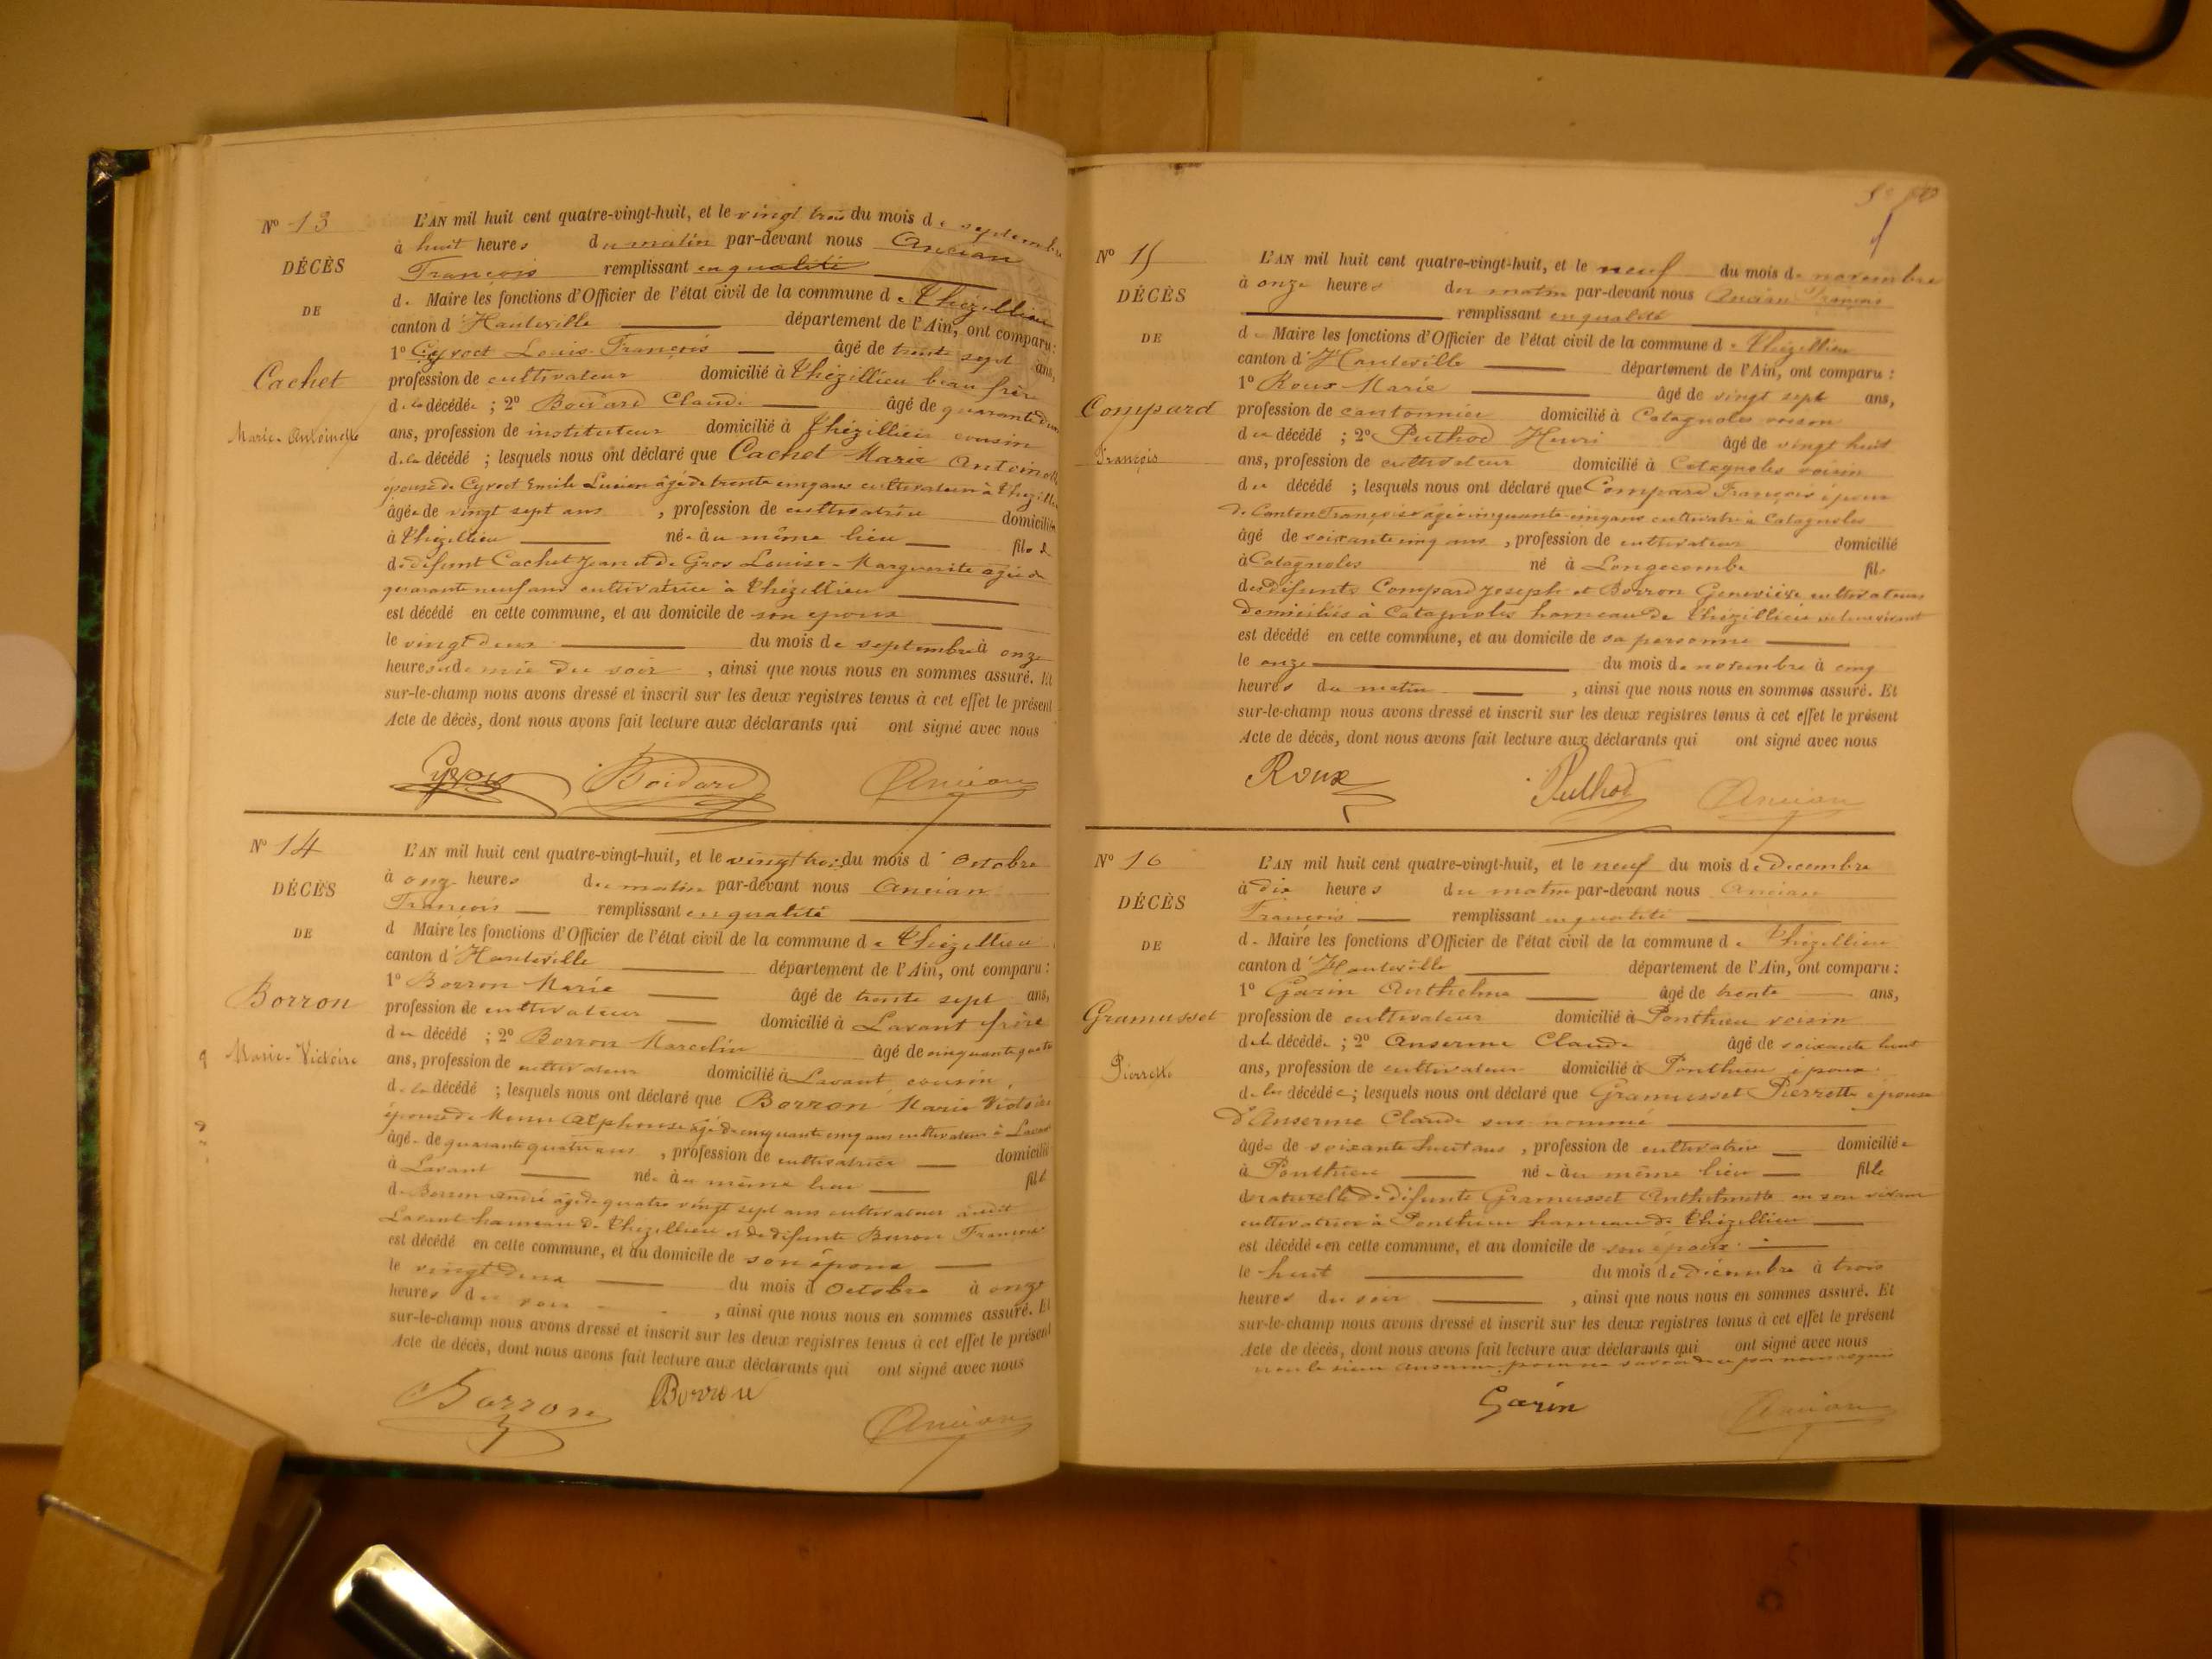 N° 13
DÉCÈS
DE
Cachet
Marie-Antoinette
L'AN mil huit cent quatre-vingt-huit, et le vingt trois du mois de septembre
à huit heures du matin par-devant nous Ancian
François remplissant en qualité
de Maire les fonctions d'Officier de l'état civil de la commune de Thézillieu
canton d'Hauteville département de l'Ain, ont comparu :
1° Cyvoct Louis-François âgé de trente sept ans,
profession de cultivateur domicilié à Thézillieu beau frère
de la décédée ; 2° Boidard Claude âgé de quarante
ans, profession de instituteur domicilié à Thézillieu cousin
de la décédé ; lesquels nous ont déclaré que Cachet Marie Antoinette
épouse de Cyvoct Emile Lucien âgé de trente cinq ans cultivateur à Thézillieu
âgée de vingt sept ans , profession de cultivatrice domiciliée
à Thézillieu née au même lieu fille
de défunt Cachet Jean et de Gros Louise-Marguerite agée de
quarante neuf ans cultivatrice à Thézillieu
est décédé en cette commune, et au domicile de son epoux
le vingt deux du mois de septembre à onze
heures et demie du soir , ainsi que nous nous en sommes assuré. Et
sur-le-champ nous avons dressé et inscrit sur les deux registres tenus à cet effet le présent
Acte de décès, dont nous avons fait lecture aux déclarants qui ont signé avec nous
Cyvoct Boidard Ancian
N° 14
DÉCÈS
DE
Borron
Marie-Victoire
L'AN mil huit cent quatre-vingt-huit, et le vingt trois du mois d'Octobre
à onze heures du matin par-devant nous Ancian
François remplissant en qualité
d Maire les fonctions d'Officier de l'état civil de la commune de Thézillieu
canton d'Hauteville département de l'Ain, ont comparu :
1° Borron Marie âgé de trente sept ans,
profession de cultivateur domicilié à Lavant frère
du décédé ; 2° Borron Marcelin âgé de cinquante quatre
ans, profession de cultivateur domicilié à Lavant cousin
de la décédé ; lesquels nous ont déclaré que Borron Marie Victoire
épouse de Alphonse âgé de cinquante cinq ans cultivateur à Lavant
âgée de quarante quatre ans , profession de cultivatrice domicilié
à Lavant née au même lieu fille
de Borron André âgé de quatre vingt sept ans cultivateur audit
Lavant hameau de Thézillieu et de défunte Borron Françoise
est décédé en cette commune, et au domicile de son époux
le vingt deux du mois d'Octobre à onze
heures du soir , ainsi que nous nous en sommes assuré. Et
sur-le-champ nous avons dressé et inscrit sur les deux registres tenus à cet effet le présent
Acte de décès, dont nous avons fait lecture aux déclarants qui ont signé avec nous
Borron Borron Ancian
N° 15
DÉCÈS
DE
Compard
François
L'AN mil huit cent quatre-vingt-huit, et le neuf du mois de novembre
à onze heures du matin par-devant nous Ancian François
remplissant en qualité
de Maire les fonctions d'Officier de l'état civil de la commune de Thézillieu
canton d'Hauteville département de l'Ain, ont comparu :
1° Roux Marie âgé de vingt sept ans,
profession de cantonnier domicilié à Catagnoles voisin
du décédé ; 2° Puthod Henri âgé de vingt huit
ans, profession de cultivateur domicilié à Catagnoles voisin
du décédé ; lesquels nous ont déclaré que Compard François époux
de Canton Françoise agée cinquante cinq ans cultivatrice à Catagnoles
âgé de soixante cinq ans , profession de cultivateur domicilié
à Catagnoles né à Longecombe fils
des défunts Compard Joseph et Borron Geneviève cultivateurs
domiciliés à Catagnoles hameau de Thézillieu en leur vivant
est décédé en cette commune, et au domicile de sa personne
le onze du mois de novembre à cinq
heures du matin , ainsi que nous nous en sommes assuré. Et
sur-le-champ nous avons dressé et inscrit sur les deux registres tenus à cet effet le présent
Acte de décès, dont nous avons fait lecture aux déclarants qui ont signé avec nous
Roux Puthod Ancian
N° 16
DÉCÈS
DE
Gramusset
Pierrette
L'AN mil huit cent quatre-vingt-huit, et le neuf du mois de decembre
à dix heures du matin par-devant nous Ancian
François remplissant en qualité
de Maire les fonctions d'Officier de l'état civil de la commune de Thézillieu
canton d'Hauteville département de l'Ain, ont comparu :
1° Garin Anthelme âgé de trente ans,
profession de cultivateur domicilié à Ponthieu voisin
de la décédée ; 2° Anserme Claude âgé de soixante huit
ans, profession de cultivateur domicilié à Ponthieu époux
de la décédée ; lesquels nous ont déclaré que Gramusset Pierrette épouse
d'Anserme Claude sus nommé
âgée de soixante huit ans , profession de cultivatrice domiciliée
à Ponthieu née au même lieu fille
naturelle de défunte Gramusset Anthelmette en son vivant
cultivatrice à Ponthieu hameau de Thézillieu
est décédée en cette commune, et au domicile de son époux
le huit du mois de décembre à trois
heures du soir , ainsi que nous nous en sommes assuré. Et
sur-le-champ nous avons dressé et inscrit sur les deux registres tenus à cet effet le présent
Acte de décès, dont nous avons fait lecture aux déclarants qui ont signé avec nous
non le sieur Anserme pour ne savoir de ce par nous requis
Garin Ancian